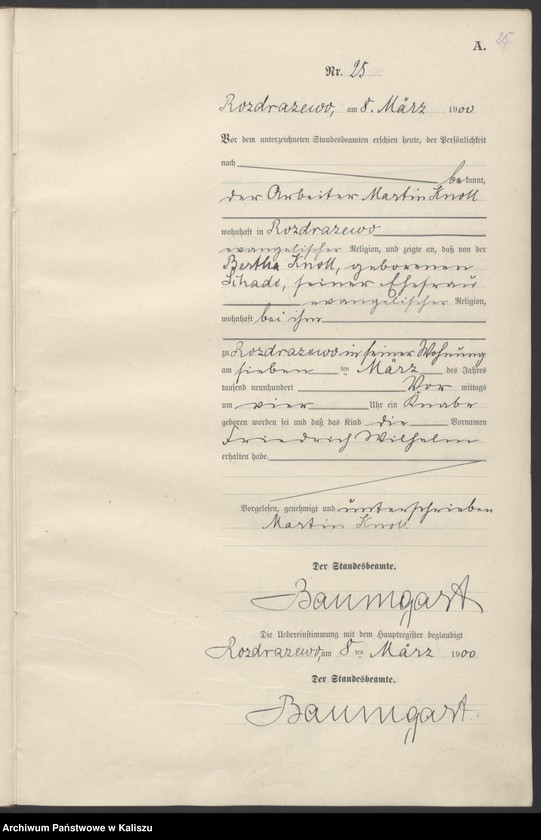 25
A.
Nr. 25
Rozdrazewo, am 8. März 1900
Vor dem unterzeichneten Standesbeamten erschien heute, der Persönlichkeit
nach
bekannt,
der Arbeiter Martin Knoll
wohnhaft in Rozdrazewo
evangelischer Religion, und zeigte an, daß von der
Bertha Knoll, geborenen
Schade, seiner Ehefrau
evangelischer Religion,
wohnhaft bei ihm
zu Rozdrazewo in seiner Wohnung
am sieben ten März des Jahres
tausend neunhundert Vor mittags
um vier Uhr ein Knabe
geboren worden sei und daß das Kind die Vornamen
Friedrich Wilhelm
erhalten habe.
Vorgelesen, genehmigt und unterschrieben
Martin Knoll
Der Standesbeamte.
Baumgart
Die Uebereinstimmung mit dem Hauptregister beglaubigt
Rozdrazewo, am 8 ten März 1900
Der Standesbeamte.
Baumgart.
Archiwum Państwowe w Kaliszu